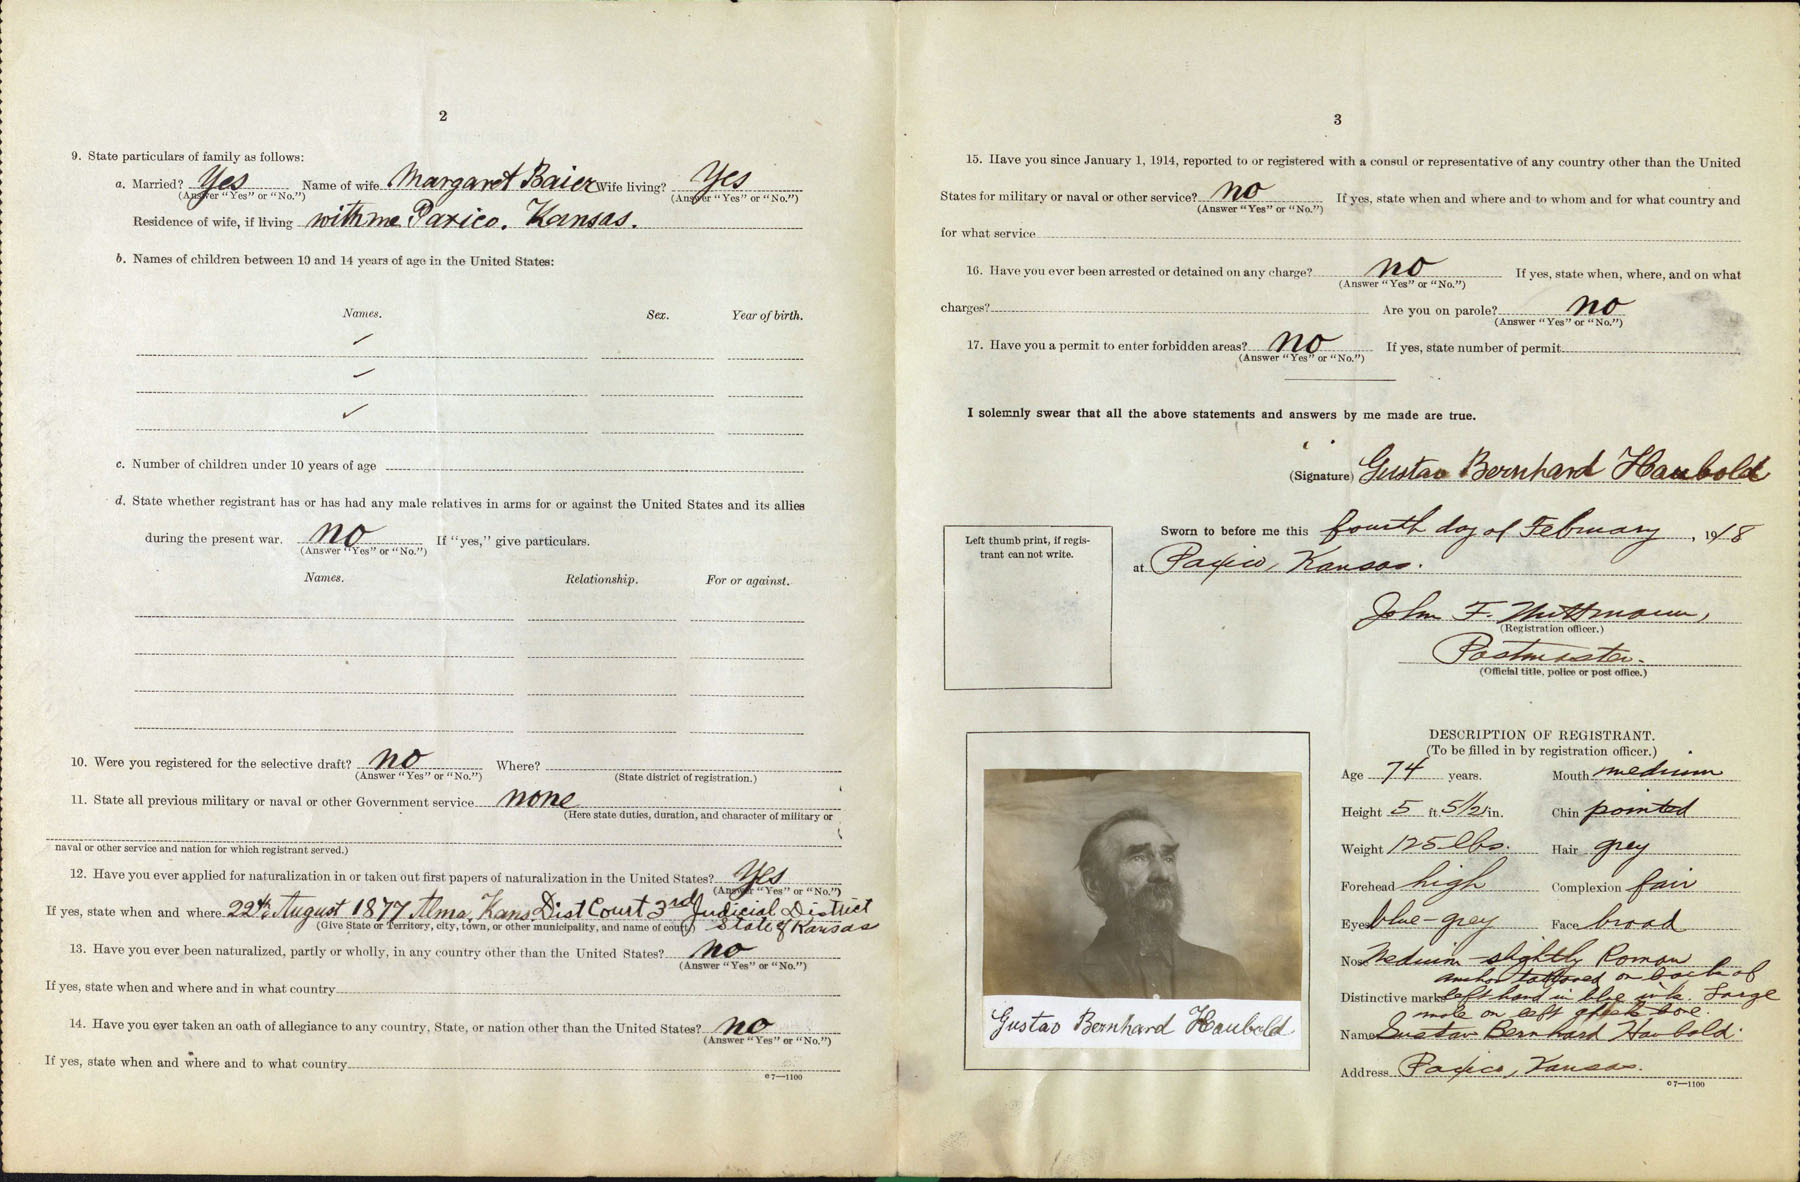 2
9. State particulars of family as follows:
a. Married? Yes Name of wife Margaret Baier Wife living? Yes
(Answer "Yes" or "No.") (Answer "Yes" or "No.")
Residence of wife, if living with me Paxico. Kansas.
b. Names of children between 10 and 14 years of age in the United States:
Names. Sex. Year of birth.
✓
✓
✓
c. Number of children under 10 years of age
d. State whether registrant has or has had any male relatives in arms for or against the United States and its allies
during the present war. no If "yes," give particulars.
(Answer "Yes" or "No.")
Names. Relationship. For or against.
10. Were you registered for the selective draft? no Where?
(Answer "Yes" or "No.") (State district of registration.)
11. State all previous military or naval or other Government service none
(Here state duties, duration, and character of military or
naval or other service and nation for which registrant served.)
12. Have you ever applied for naturalization in or taken out first papers of naturalization in the United States? Yes
(Answer "Yes" or "No.")
If yes, state when and where 22th August 1877 Alma, Kans. Dist Court 3rd Judicial District
(Give State or Territory, city, town, or other municipality, and name of court) State of Kansas
13. Have you ever been naturalized, partly or wholly, in any country other than the United States? no
(Answer "Yes" or "No.")
If yes, state when and where and in what country
14. Have you ever taken an oath of allegiance to any country, State, or nation other than the United States? no
(Answer "Yes" or "No.")
If yes, state when and where and to what country
c7—1100
3
15. Have you since January 1, 1914, reported to or registered with a consul or representative of any country other than the United
States for military or naval or other service? no If yes, state when and where and to whom and for what country and
(Answer "Yes" or "No.")
for what service
16. Have you ever been arrested or detained on any charge? no If yes, state when, where, and on what
(Answer "Yes" or "No.")
charges? Are you on parole? no
(Answer "Yes" or "No.")
17. Have you a permit to enter forbidden areas? no If yes, state number of permit
(Answer "Yes" or "No.")
I solemnly swear that all the above statements and answers by me made are true.
(Signature) Gustav Bernhard Haubold
Left thumb print, if regis-
trant can not write.
Sworn to before me this fourth day of February, 1918
at Paxico, Kansas.
John F.
(Registration officer.)
Postmaster.
(Official title, police or post office.)
Gustav Bernhard Haubold
DESCRIPTION OF REGISTRANT.
(To be filled in by registration officer.)
Age 74 years. Mouth medium
Height 5 ft. 5 1/2 in. Chin pointed
Weight 125 lbs. Hair grey
Forehead high Complexion fair
Eyes blue-grey Face broad
Nose Medium - slightly Roman
anchor tattooed on back of
Distinctive marks left hand in blue ink. Large
mole on left cheek bone.
Name Gustav Bernhard Haubold.
Address Paxico, Kansas.
c7—1100